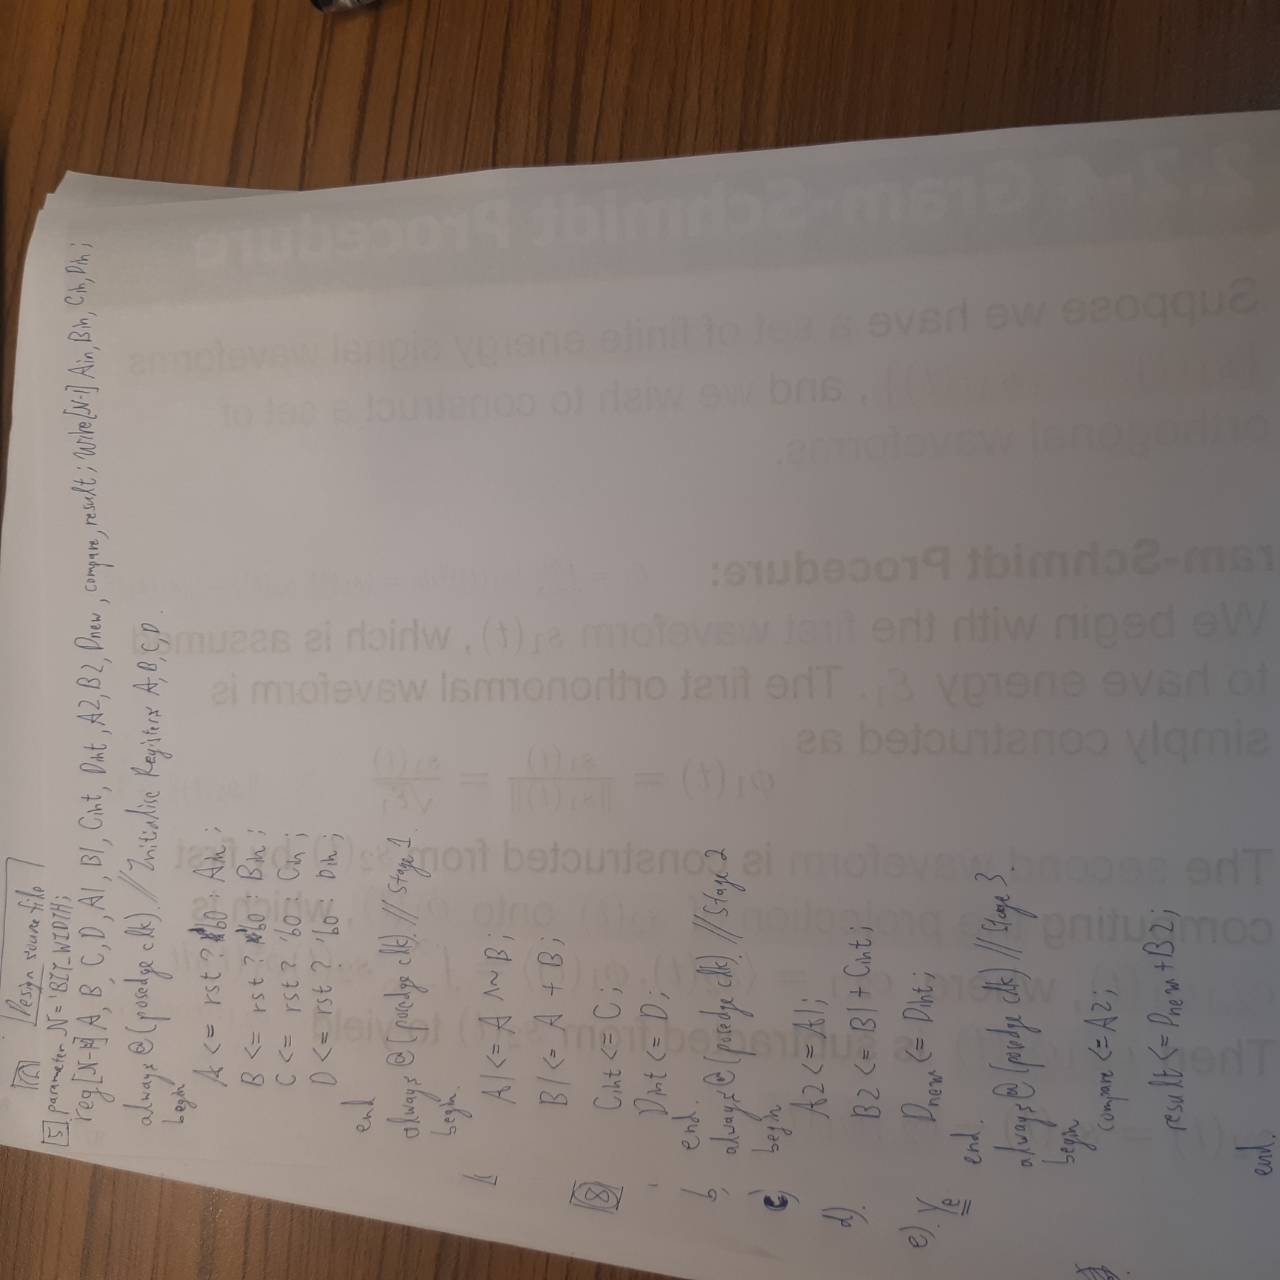 Design source file
5 parameter N = 'BIT_WIDTH;
reg[N-1] A, B, C, D, A1, B1, Cint, Dint, A2, B2, Dnew, compare, result; wire[N-1] Ain, Bin, Cin, Din;
always @(posedge clk) // Initialise Registers A, B, C, D.
begin
A <= rst ? 'b0 : Ain;
B <= rst ? 'b0 : Bin;
C <= rst ? 'b0 : Cin;
D <= rst ? 'b0 : Din;
end
always @(posedge clk) // Stage 1
begin
A1 <= A ~^ B;
B1 <= A + B;
Cint <= C;
Dint <= D;
end.
always @(posedge clk) // Stage 2
begin
A2 <= A1;
B2 <= B1 + Cint;
Dnew <= Dint;
end.
always @(posedge clk) // Stage 3.
begin
compare <= A2;
result <= Dnew + B2;
end.
8
b,
c)
d).
e). Ye
2.2-4 Gram-Schmidt Procedure
Suppose we have a set of finite energy signal waveforms
, and we wish to construct a set of
orthogonal waveforms.
ram-Schmidt Procedure:
We begin with the first waveform s₁(t), which is assumed
to have energy ℰ₁. The first orthonormal waveform is
simply constructed as
φ₁(t) = s₁(t)/||s₁(t)|| = s₁(t)/√ℰ₁
The second waveform is constructed from s₂(t) by first
computing the projection of s₂(t) onto φ₁(t), which is
Then is subtracted from s₂(t) to yield